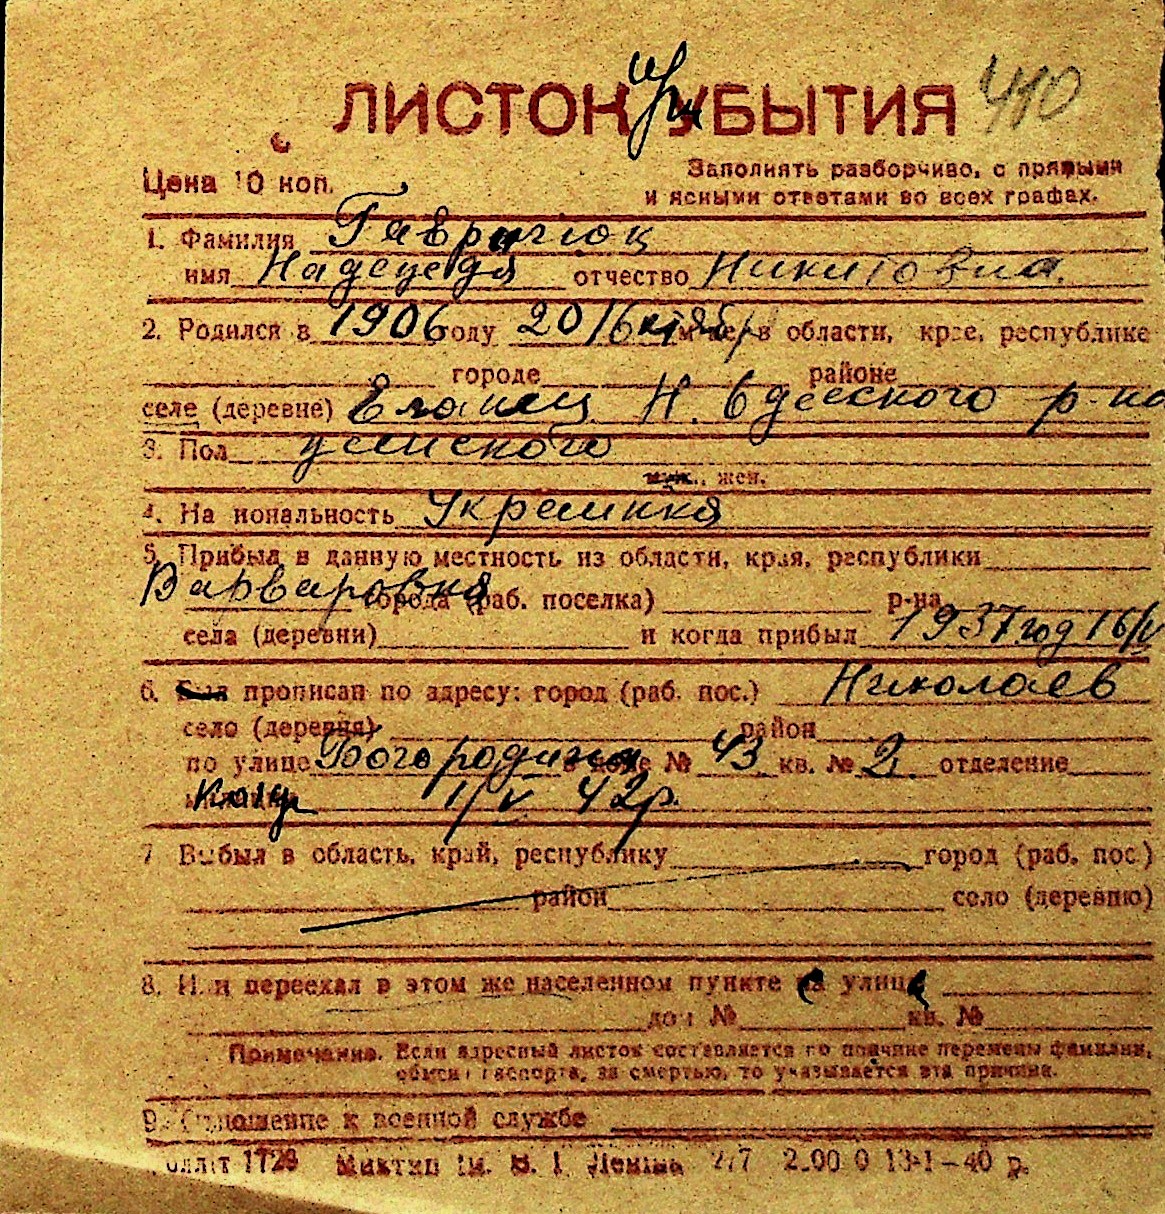 ЛИСТОК УБЫТИЯ при 410
Цена 10 коп. Заполнять разборчиво, с прямыми
и ясными ответами во всех графах.
1. Фамилия Гаврилюк
имя Надежда отчество Никитовна.
2. Родился в 1906 году 20/ октябр в области, крае, республике
городе районе
селе (деревне) Еланец Н. Одесского р-на
3. Пол женского
муж., жен.
4. Национальность Украинка
5. Прибыл в данную местность из области, края, республики
Варваровка города (раб. поселка) р-на
села (деревни) и когда прибыл 1937 год 16/IV
6. Был прописан по адресу: город (раб. пос.) Николаев
село (деревня) район
по улице № 43 кв. № 2 отделение
1/V 42р.
7 Выбыл в область, край, республику город (раб. пос.)
район село (деревню)
8. Или переехал в этом же населенном пункте на улице
дом № кв. №
Примечание. Если адресный листок составляется по причине перемены фамилии,
обмена паспорта, за смертью, то указывается эта причина.
9. Отношение к военной службе
1729 ім. В. І. Леніна 277 2.00 0 13-1-40 р.